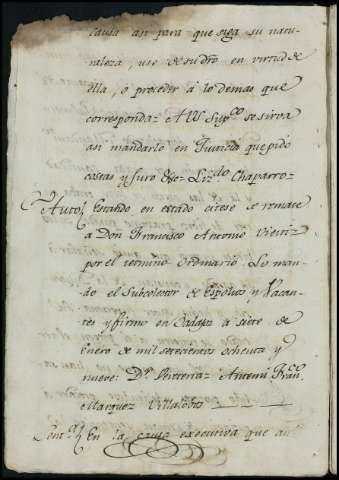 causa asi para que siga su natu-
raleza, use de su dro. en virtud de
ella, o proceder à lo demas que
corresponda = A VS Suppco se sirva
asi mandarlo en Justicia que pido
costas y juro &a = Lizdo Chaparro =
Auto} Estando en estado citese de remate
a Don Francisco Antonio Vieitiz
por el termino ordinario. Lo man-
do el Subcolector de Espolios y Vacan-
tes y firmo en Badajoz a siete de
Enero de mil setecientos ochenta y
nueve = Dr. = Antemi Franco
Marquez Villalobos
En la causa executiva que an